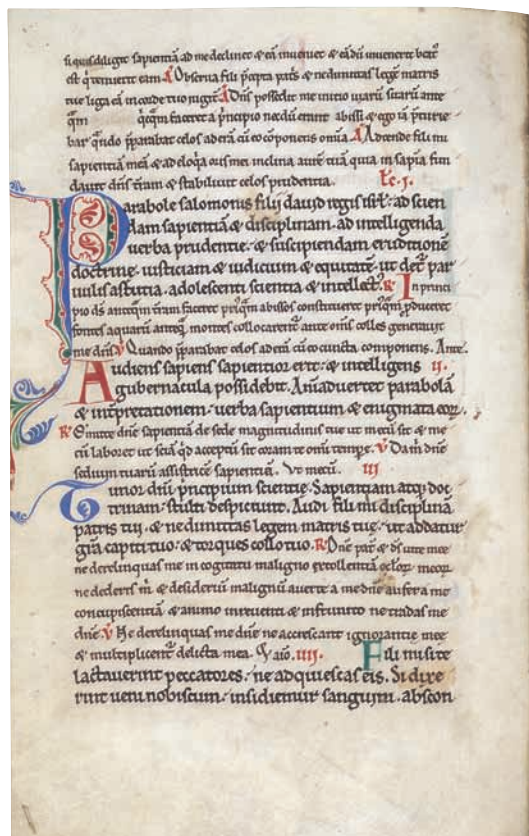 si quis diligit sapientiā ad me declinet & eā inveniet & eā dū invenerit beat᷒
est si tenuerit eam A Observa fili p̄cepta patris & ne dimittas legē matris
tue liga eā in corde tuo A Dn̄s possedit me initio viarū suarū ante
qm̄ qicqm̄ faceret a p̄ncipio necdū erant abissi & ego iā
bar qn̄do p̄parabat celos aderā cū eo cōponens omia A Adtende fili mi
sapientiā meā & ad eloq̄a oris mei inclina aurē tuā quia in sapīa fun
davit dn̄s t̄ram & stabilivit celos prudentia. Lc̄. I.
Parabole salomonis filij david regis isrl̄: ad scien
dam sapientiā & disciplinam. ad intelligenda
verba prudentie. & suscipiendam eruditionē
doctrine. iusticiam & iudicium & equitatē. ut det᷒ par
vulis astutia. adolescenti scientia & intellect᷒. R In princi
pio ds̄ anteq̄m t̄ram faceret priusq̄m abissos constitueret priusq̄m p̄duceret
fontes aquarū anteq̄ montes collocarent᷒ ante om̄s colles generavit
me dn̄s V Quando p̄parabat celos aderā cū eo cuncta componens. Ante.
Audiens sapiens sapientior erit: & intelligens II.
gubernacula possidebit. Aīadvertet parabolā
& int̄pretationem. verba sapientium & enigmata eoꝝ.
R Emitte dn̄e sapientiā de sede magnitudinis tue ut mecū sit & me
cū laboret ut sciā qd̄ acceptū sit coram te om̄i tempe. V Da m̄ dn̄e
sediū tuarū assistricē sapientiā. Ut mecū. III
Timor dn̄i p̄ncipium scientie. Sapientiam atq; doc
trinam. stulti despiciunt. Audi fili mi disciplinā
patris tui. & ne dimittas legem matris tue. ut addatur
gr̄a capiti tuo. & torques collo tuo. R Dn̄e pat̄ & ds̄ vite mee
ne derelinquas me in cogitatu maligno extollentiā ocloꝝ meoꝝ
ne dederis m̄ & desideriū malignū averte a me dn̄e aufer a me
concupiscentiā & animo inreverenti & infrunito ne tradas me
dn̄e. V Ne derelinquas me dn̄e ne accrescant ignorantie mee
& multiplicent᷒ delicta mea. IIII. Fili mi si te
lactaverint peccatores. ne adquiescas eis. Si dixe
rint veni nobiscum. insidiemur sanguini. abscon